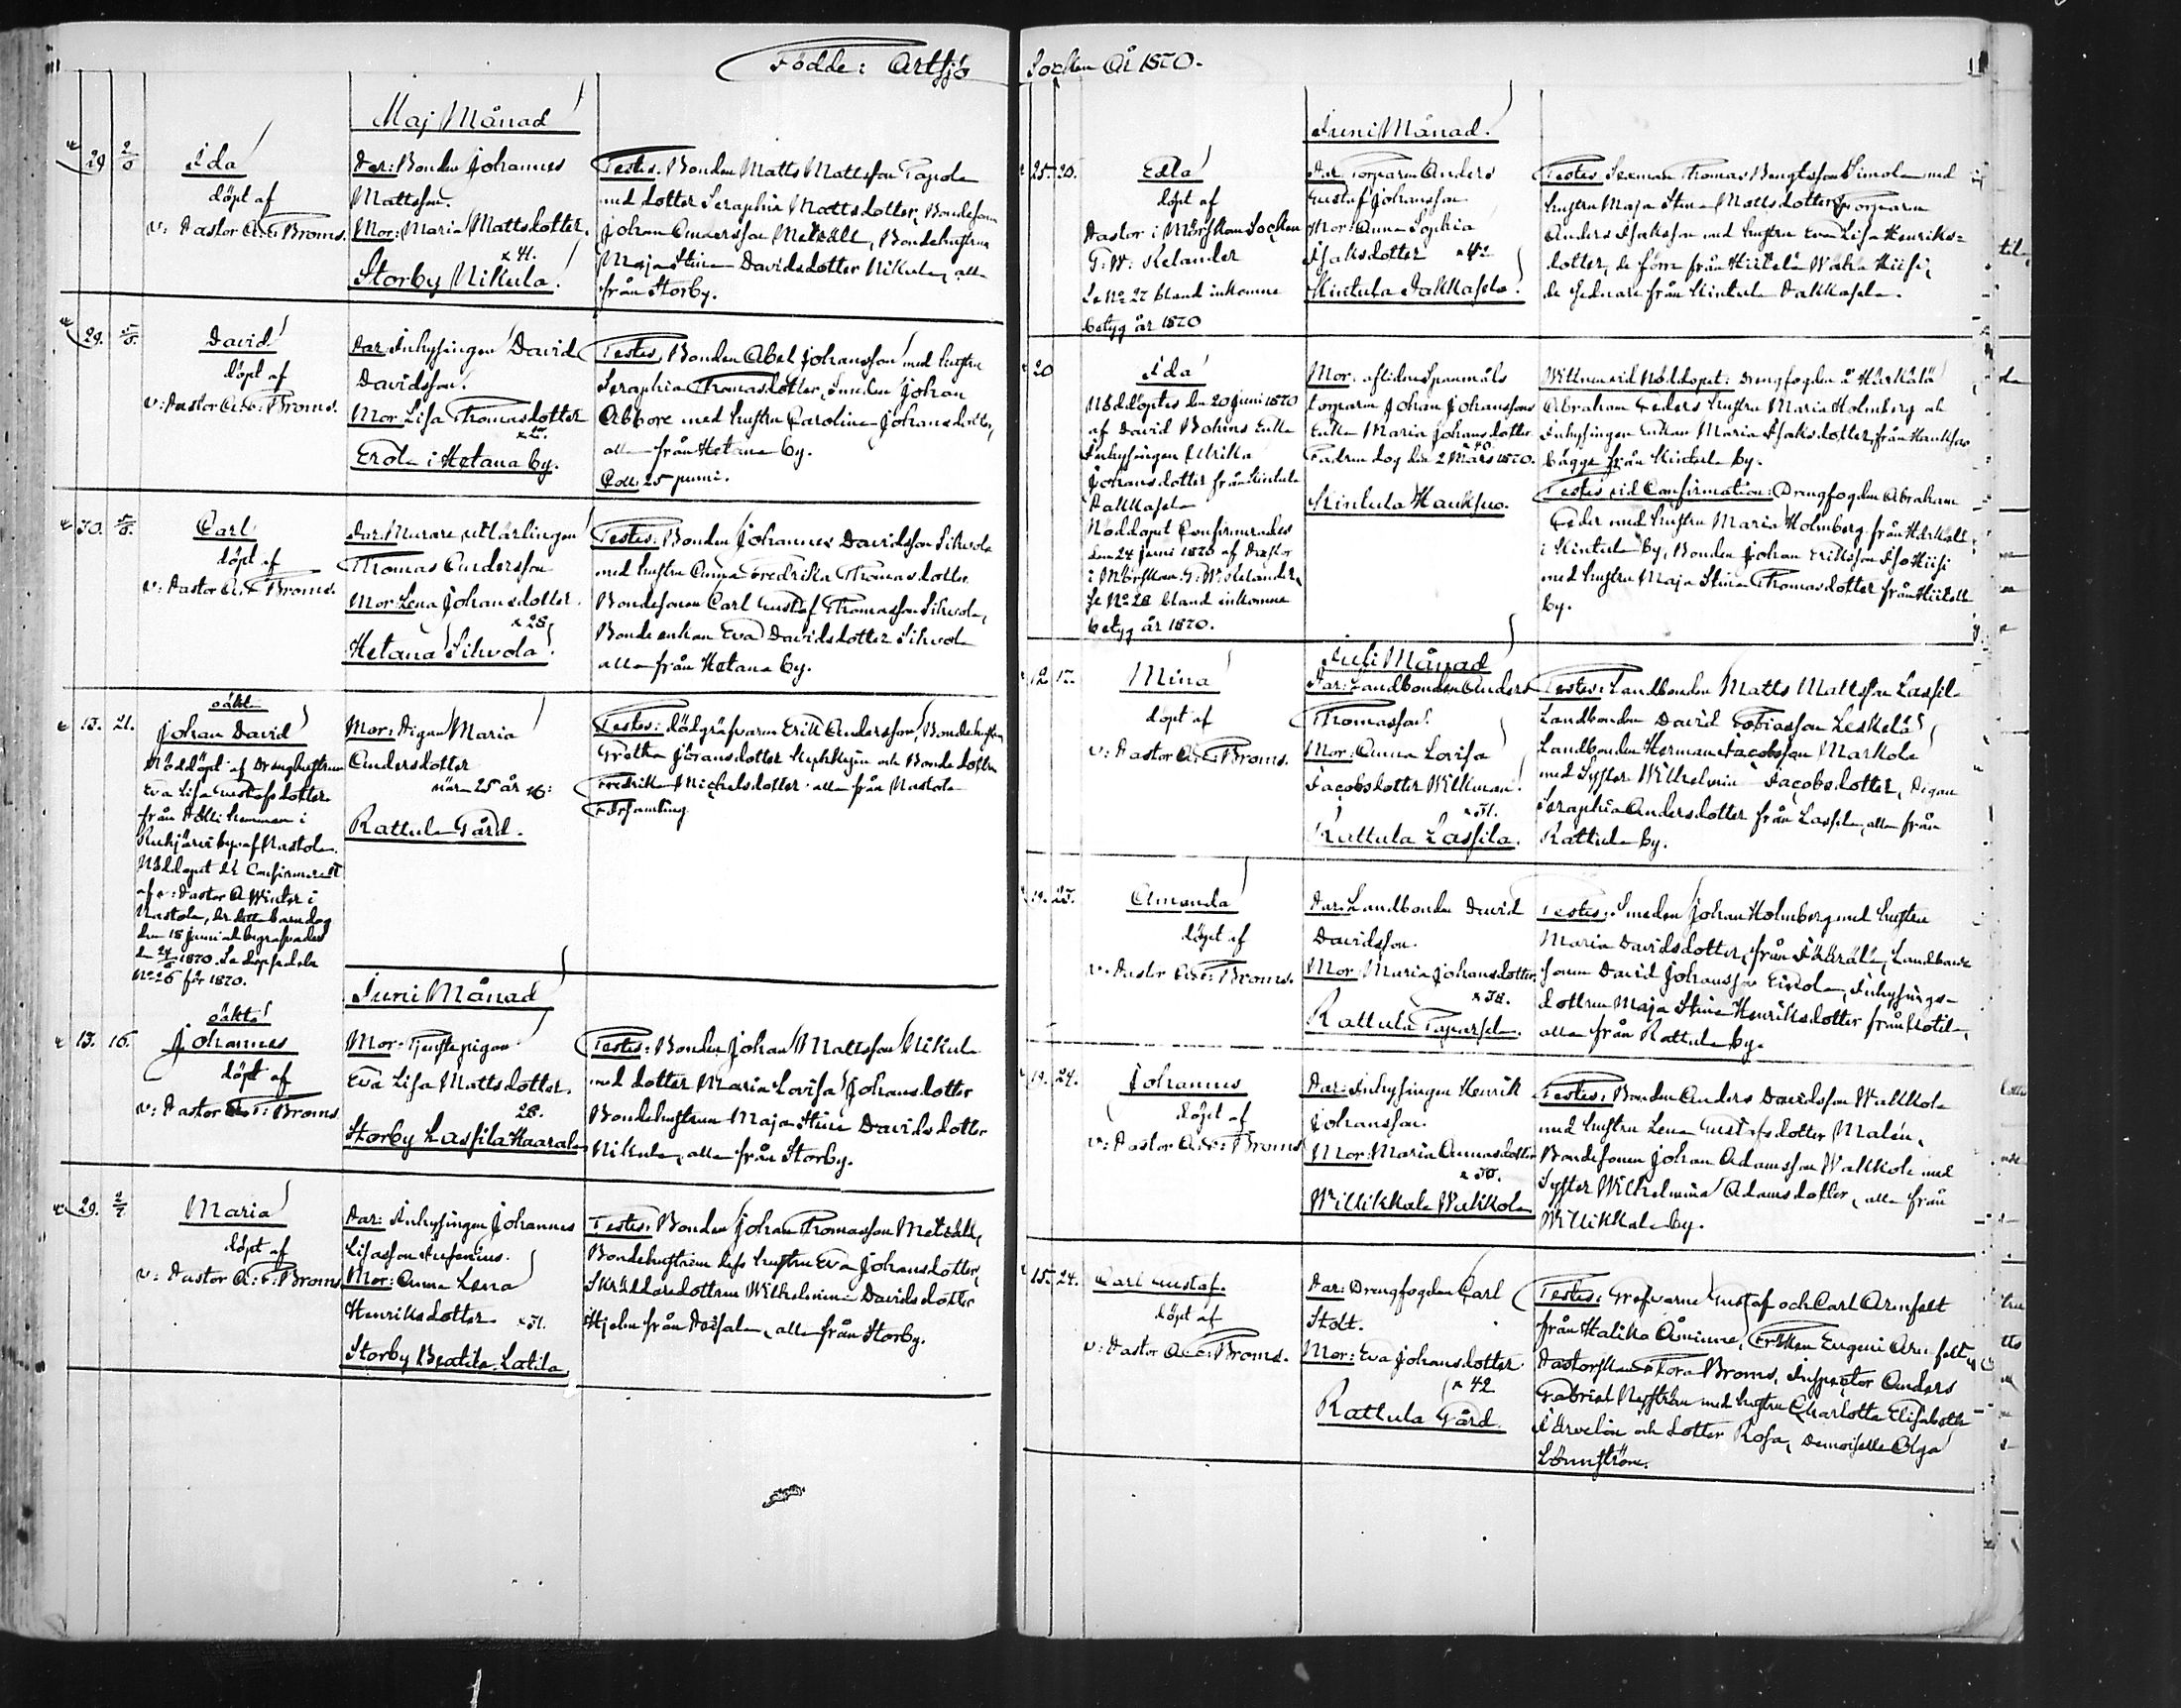 Födde i Artsjö
Maj Månad
29 2/6 Ida
döpt af
v: Pastor A: F: Broms.
Par: Bonden Johannes
Mattsson.
Mor: Maria Mattsdotter.
41.
Storby Nikula.
Testes. Bonden Matts Mattsson Tapola
med dotter Seraphia Mattsdotter, Bondesonen
Johan Andersson Metsälä, Bondehustrun
Maja Stina Davidsdotter Nikula, alla
från Storby.
29. 5/6. David
döpt af
v: Pastor A: F: Broms.
Par: Inhysingen David
Davidsson.
Mor Lisa Thomasdotter
Erola i Hetana by.
Testes, Bonden Abel Johansson med hustru
Seraphia Thomasdotter, Smeden Johan
Abbore med hustru Carolina Johansdotter,
alla från Hetana by.
25 juni.
30. 5/6. Carl
döpt af
v: Pastor A: F: Broms.
Par: Murare utlärlingen
Thomas Andersson
Mor Lena Johansdotter.
28
Hetana Sihvola.
Testes. Bonden Johannes Davidsson Sihvola
med hustru Anna Fredrika Thomasdotter
Bondesonen Carl Gustaf Thomasson Sihvola,
Bondeenkan Eva Davidsdotter Sihvola
alla från Hetana by.
oäkta
13. 21. Johan David
Nöddöpt af Dränghustrun
Eva Lisa Gustafsdotter
från Hölli hemman i
Ruhijärvi by af Nastola.
Nöddopet är Confirmeradt
af v: Pastor A Winter i
Nastola, där detta barn dog
den 15 juni och begrafvades
d 24/6 1870. Se dopsedeln
No 26 för 1870.
Mor: Pigan Maria
Andersdotter
när 25 år
Rattula Gård.
Testes: dödgräfvaren Erik Andersson, Bondehustrun
Gretha Göransdotter och Bonde dottren
Fredrika Michelsdotter alla från Nastola
Församling
Juni Månad
oäkta
13. 16. Johannes
döpt af
v: Pastor A: F: Broms
Mor: Tjenstepigan
Eva Lisa Mattsdotter.
28.
Storby Lassila Haarala
Testes: Bonden Johan Mattsson Nikula
med dotter Maria Lovisa Johansdotter
Bondehustrun Maja Stina Davidsdotter
Nikula, alla från Storby.
29. 2/7 Maria
döpt af
v: Pastor A: F: Broms
Par: Inhysingen Johannes
Lisasson
Mor: Anna Lena
Henriksdotter 31.
Storby Lalila
Testes: Bonden Johan Thomasson Metsälä,
Bondehustrun dess hustru Eva Johansdotter,
Skräddaredottren Wilhelmina Davidsdotter
Hjelm från alla från Storby.
Socken År 1870.
Juni Månad.
25 26. Edla
döpt af
Pastor i Mörskom Socken
G: W: Relander
Se No 27 bland inkomne
betyg år 1870
Par Torparen Anders
Gustaf Johansson
Mor Anna Sophia
Isaksdotter
Kintula Pakkasela.
Testes Sexman Thomas Bengtsson Simola med
hustru Maja Stina Mattsdotter, Torparen
Anders Isaksson med hustru Eva Lisa Henriks=
dotter, de förra från Hiitelä
de sednare från Kintula Pakkasela.
20 Ida
Nöddöptes den 20 Juni 1870
af David Bohms Enka
Inhysingen Ulrika
Johansdotter från Kintula
Pakkasela
Nöddopet Confirmerades
den 24 juni 1870 af Pastor
i Mörskom G: W: Relander,
Se No 28 bland inkomne
betyg år 1870.
Mor. aflidne Spanmåls
torparen Johan Johanssons
Enka Maria Johansdotter
Fadren dog den 2 Mars 1870.
Kintula Hauksuo.
Wittnen vid Nöddopet: Drengfogden å Härkälä
Abraham Feders hustru Maria Holmberg och
Inhysingen enkan Maria Isaksdotter från Hauksuo
bägge från Kintula by.
Testes vid Confirmation: Drengfogden Abraham
Feder med hustru Maria Holmberg från Härkälä
i Kintula by, Bonden Johan Eriksson Iso Hiisi
med hustru Maja Stina Thomasdotter från Hiitelä
by.
Juli Månad
12 17. Mina
döpt af
v: Pastor A: F: Broms.
Par: Landbonden Anders
Thomasson.
Mor: Anna Lovisa
Jacobsdotter Willman
31.
Rattula Lassila.
Testes: Landbonden Matts Mattsson Lassila
Landbonden David Tobiasson Leskelä,
Landbonden Herman Jacobsson Markola
med Syster Wilhelmina Jacobsdotter, Pigan
Seraphia Andersdotter från Lassila, alla från
Rattula by.
19. 23. Amanda
döpt af
v: Pastor A: F: Broms.
Par: Landbonden David
Davidsson.
Mor: Maria Johansdotter
38.
Rattula
Testes: Smeden Johan Holmberg med hustru
Maria Davidsdotter, från Landbonde
sonen David Johansson Eirola, Inhysings-
dottren Maja Stina Henriksdotter från Kotila,
alla från Rattula by.
19. 24. Johannes
döpt af
v: Pastor A: F: Broms
Par: Inhysingen Henrik
Johansson.
Mor: Maria Annasdotter
Willikkala Walkkola
Testes: Bonden Anders Davidsson Walkkola
med hustru Lena Gustafsdotter Malén,
Bondesonen Johan Adamsson Walkkola med
Syster Wilhelmina Adamsdotter, alla från
Willikkala by.
15. 24. Carl Gustaf.
döpt af
v: Pastor A: F: Broms.
Par: Drengfogden Carl
Stolt.
Mor: Eva Johansdotter
42
Rattula Gård
Testes: Grefvarne Gustaf och Carl Armfelt
från Halikko Åminne, Fröken Eugenie Armfelt
Pastorskan Flora Broms, Inspector Anders
Gabriel Nyström med hustru Charlotta Elisabeth
Färvelin och dotter Rosa, Demoiselle Olga
Lönnström.